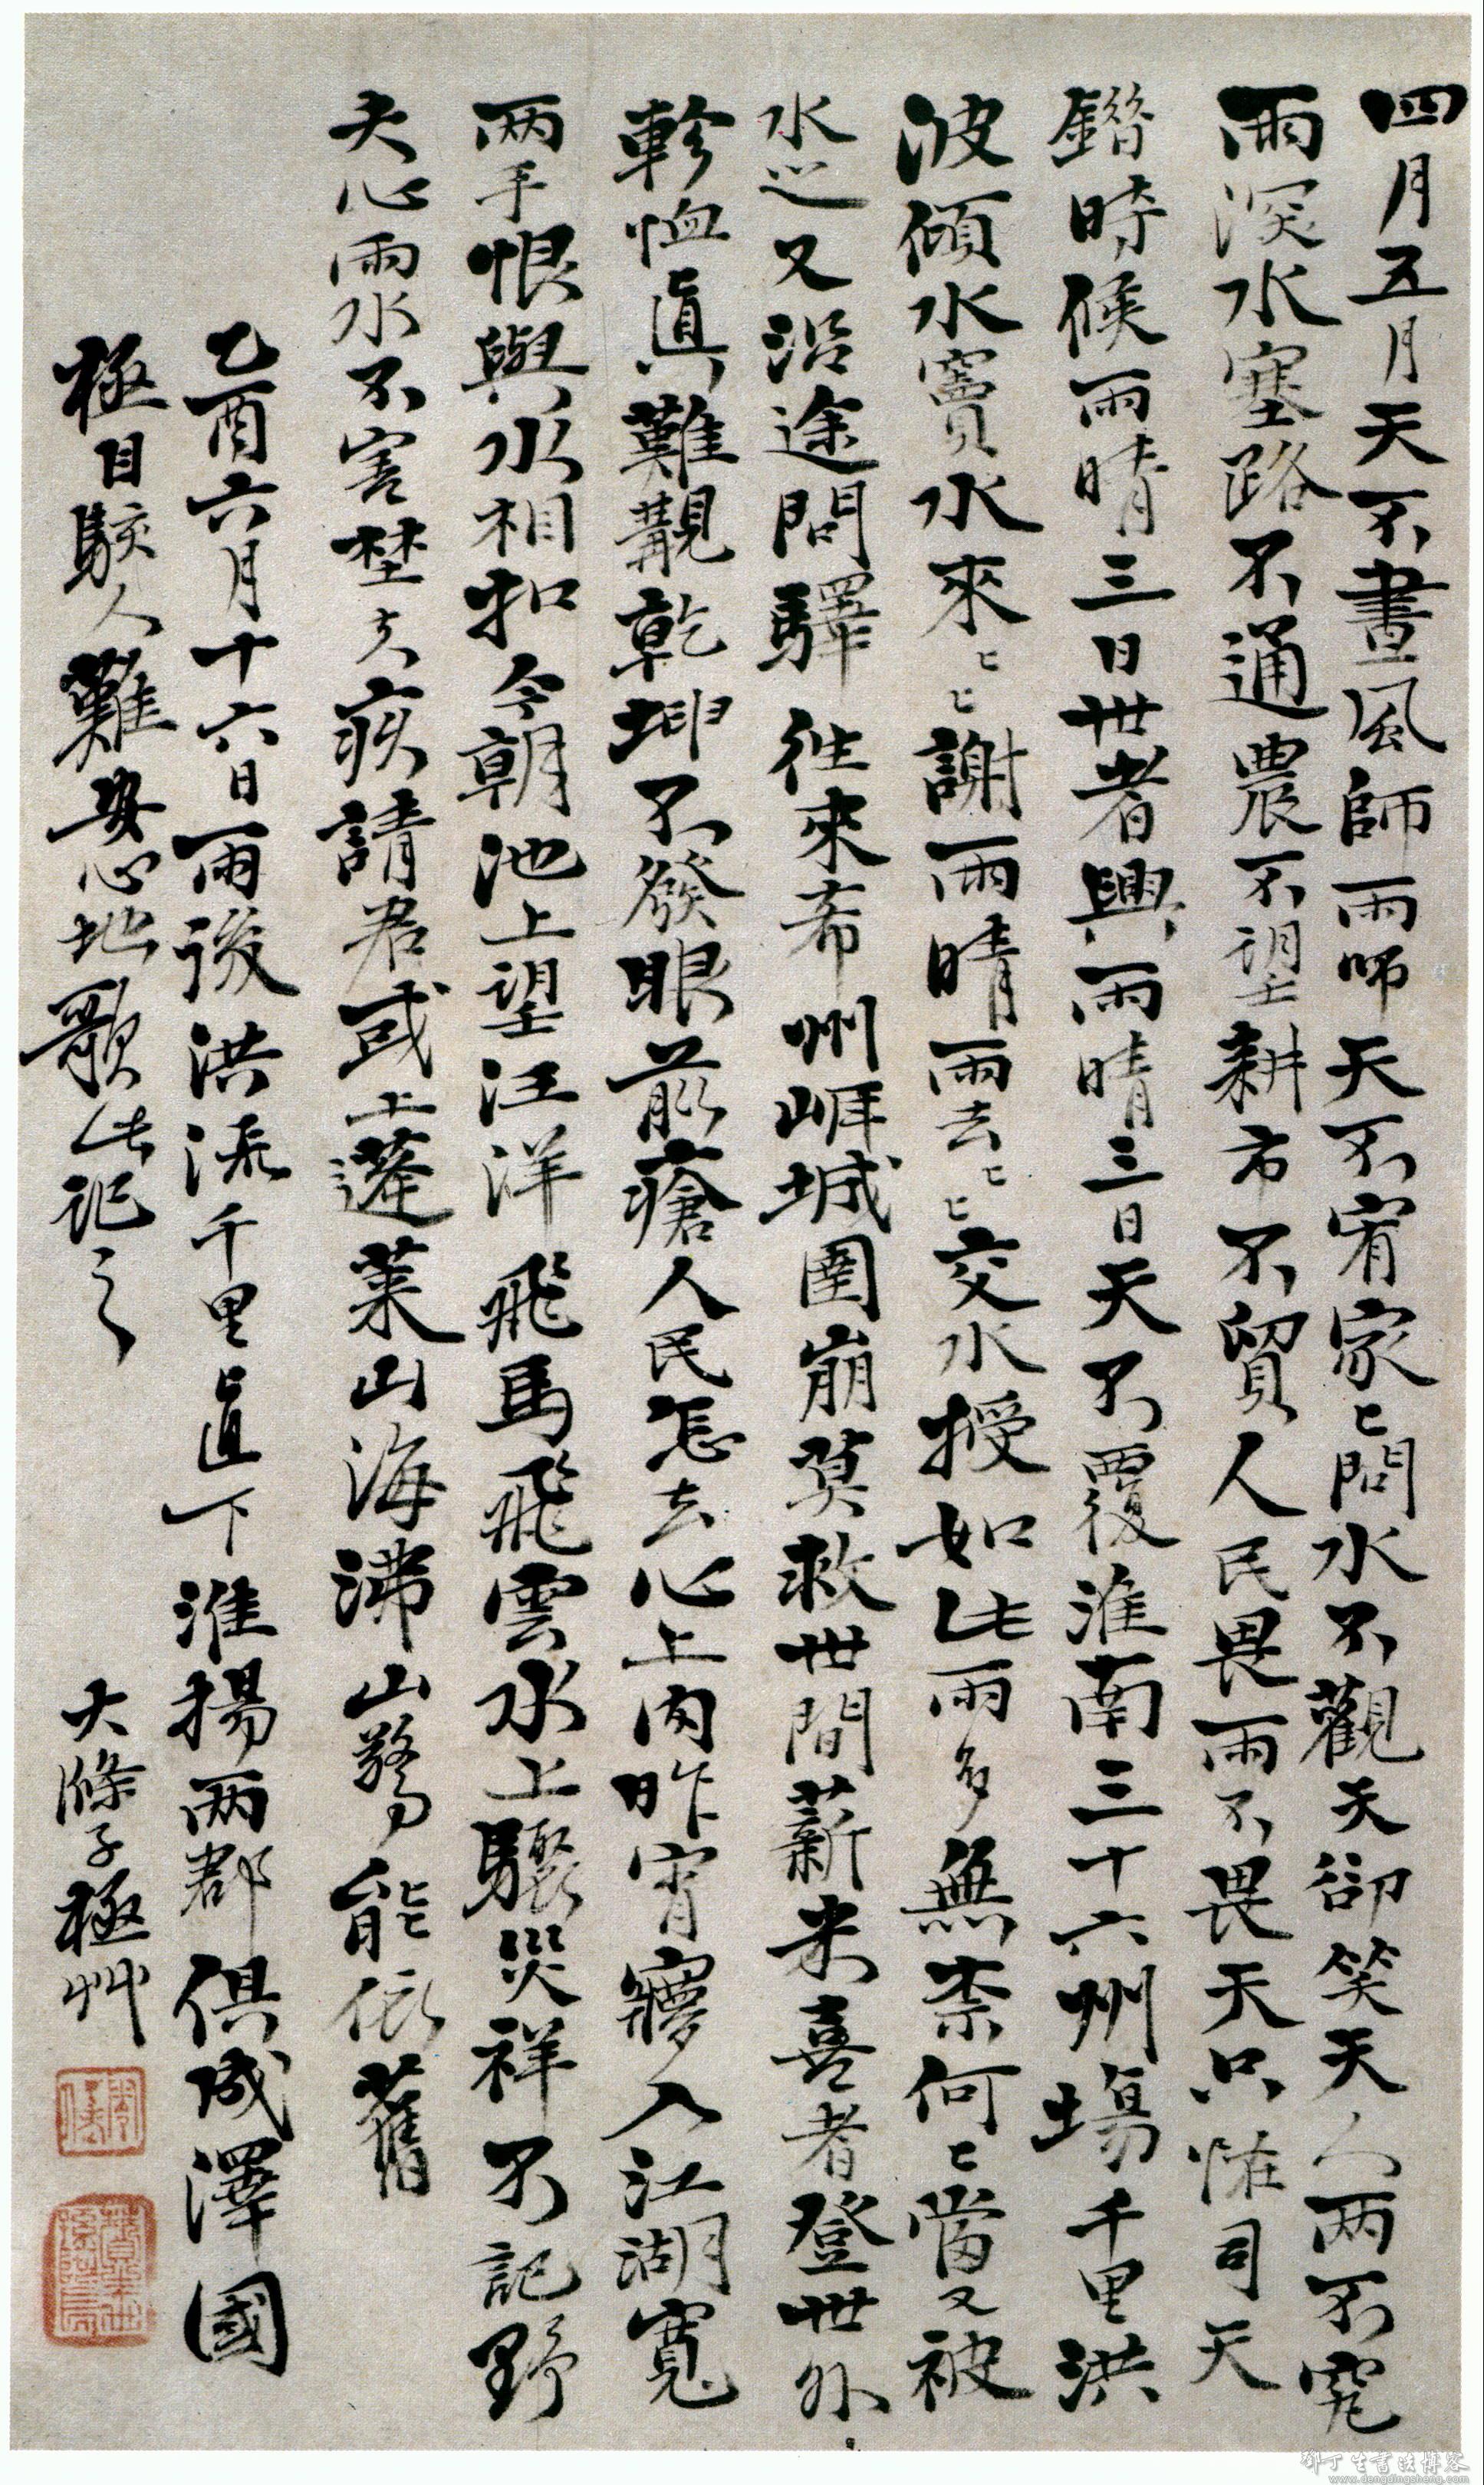 四月五月天不晝風師雨师天不宥家〻問水不觀天卻笑天人兩不究
雨深水塞路不通農不望耕市不貿人民畏雨不畏天只怪司天
錯時候雨晴三日世者興雨晴三日天不覆淮南三十六州場千里洪
波傾水竇水來〻〻謝雨晴雨去〻〻交水授如此雨多無柰何〻當又被
水〻又沿途問驛往來希州崕城圍崩莫救世間薪米喜者登世外
軫恤真難覯乾坤不發眼前瘡人民怎去心上肉昨宵寢入江湖寬
兩手恨與水相扣今朝池上望汪洋飛馬飛雲水上驟災祥不記野
夫心雨水不害埜夫疾請君或上蓬萊山海沸山驚能依舊
乙酉六月十六日雨後洪流千里直下淮揚兩郡俱成澤國
極目駭人難安心地歌此記之
大滌子極艸
鄧丁生書法博客
www.dengdingsheng.com